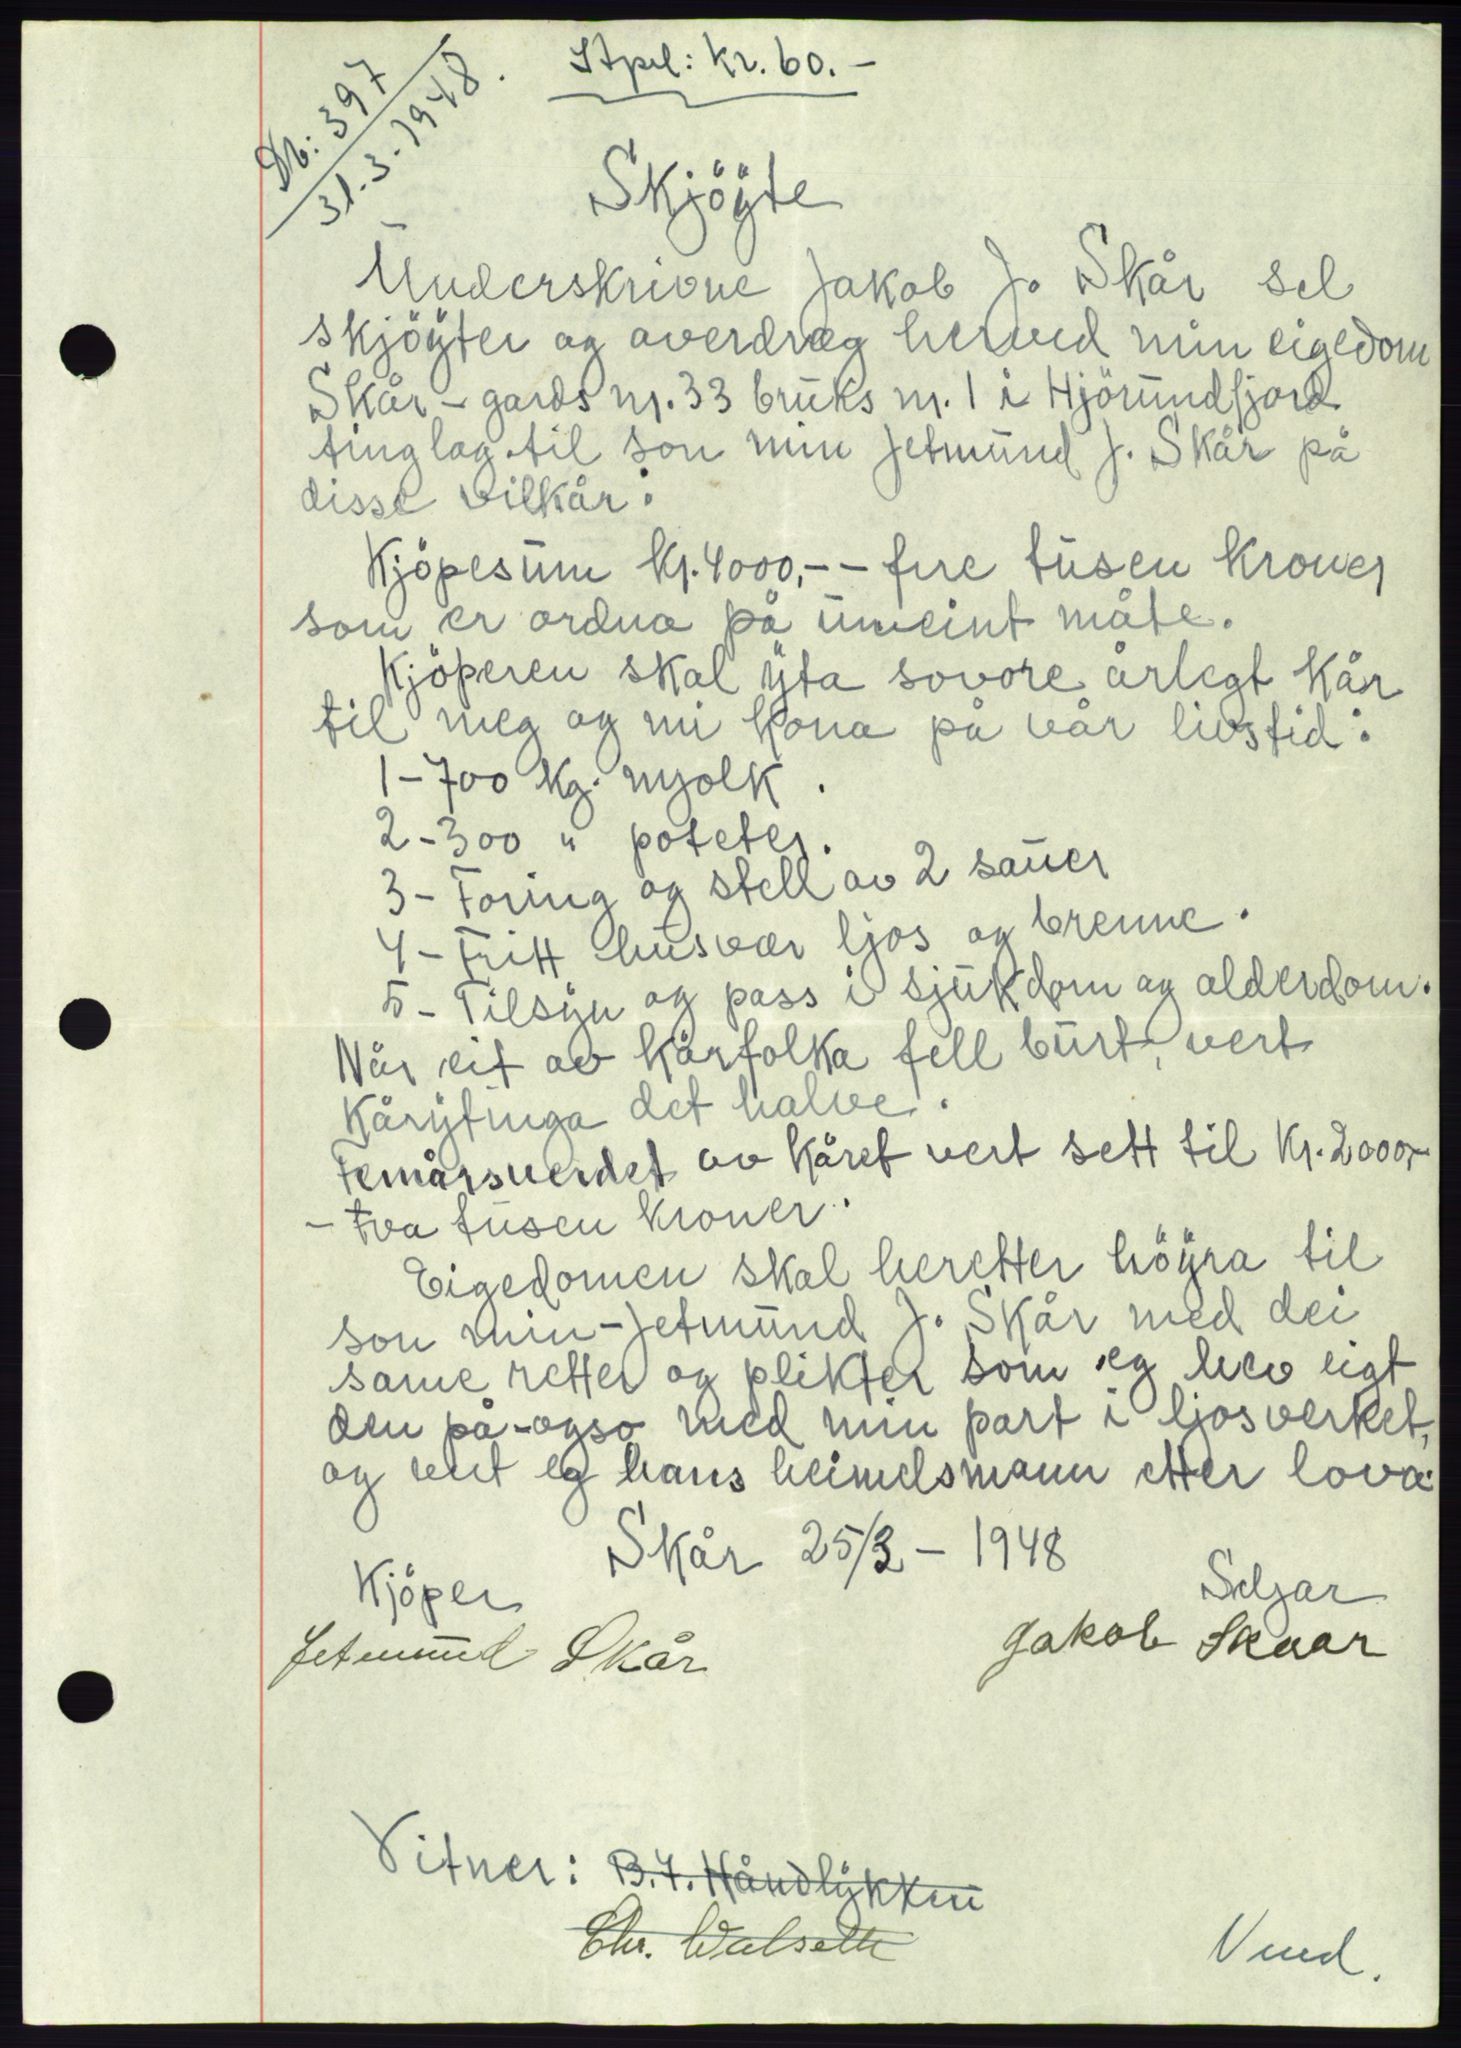 Db: 397
31-3-1948.
Stpel: Kr. 60.-
Skjöyte
Underskrivne Jakob J. Skår sel
skjöyter og averdrag herved min eigedom
Skår - gards nr. 33 bruks nr. 1 i Hjörundfjord
tinglag til son min Jetmund J. Skår på
disse vilkår:
Kjöpesum Kr. 4000,-- fire tusen kroner
som er ordna på umeint måte.
Kjöperen skal yta sovore årlegt kår
til meg og mi kona på vår livstid:
1-700 kg. mjolk.
2-300 " poteter.
3- Foring og stell av 2 sauer
4- Fritt husvær ljos og brenne.
5- Tilsyn og pass i sjukdom og alderdom.
Når eit av kårfolka fell burt, vert
kårytinga det halve.
Femårsverdet av kåret vert sett til Kr. 2000,-
- tva tusen kroner.
Eigedomen skal heretter höyra til
son min - Jetmund J. Skår med dei
same retter og plikter som eg hev eigt
den på - ogso med min part i ljosverket,
og vert eg hans heimelsmann etter lova.
Skår 25/3 - 1948
Kjöper Seljar
Jetmund Skår Jakob Skaar
Vitner: B. J. Håndlykken
Chr. Walseth
Vend.